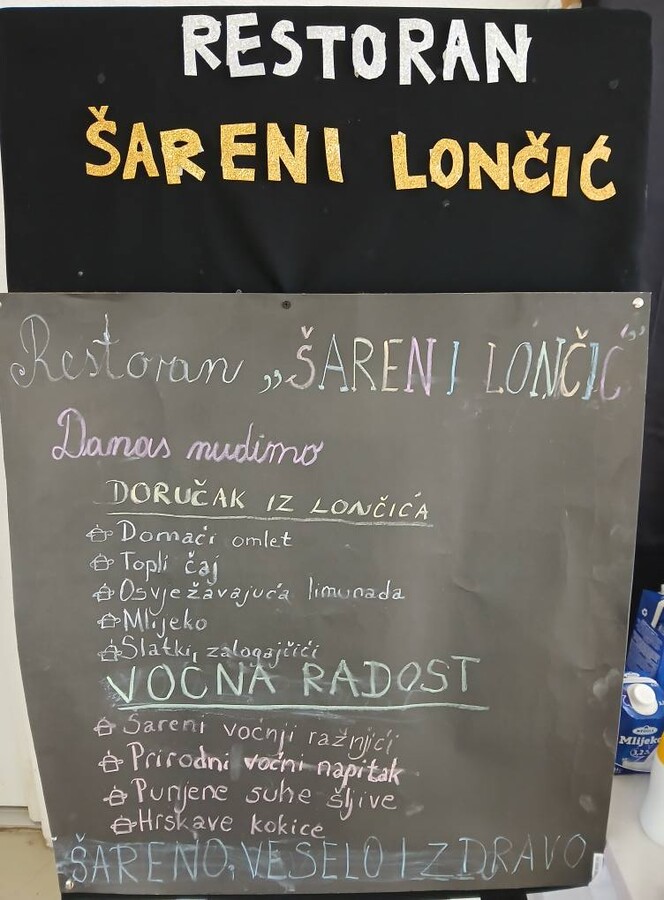 RESTORAN
ŠARENI LONČIĆ
Restoran „ŠARENI LONČIĆ”
Danas nudimo
DORUČAK IZ LONČIĆA
Domaći omlet
Topli čaj
Osvježavajuća limunada
Mlijeko
Slatki zalogajčići
VOĆNA RADOST
Šareni voćnji ražnjići
Prirodni voćni napitak
Punjene suhe šljive
Hrskave kokice
ŠARENO, VESELO I ZDRAVO
Mlijeko